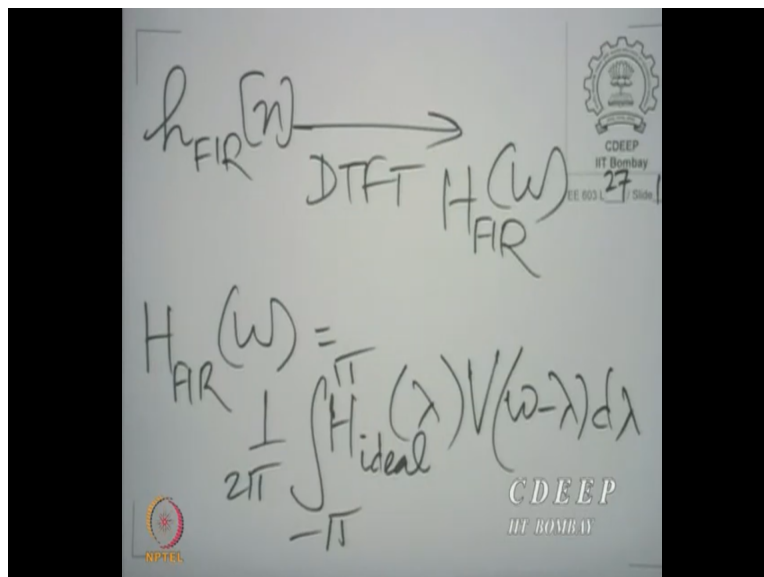 h_FIR[n] ⟶ DTFT H_FIR(ω)
CDEEP
IIT Bombay
EE 603 L 27 / Slide 1
H_FIR(ω) =
1/2π ∫_{-π}^{π} H_ideal(λ) V(ω-λ) dλ
CDEEP
IIT BOMBAY
NPTEL